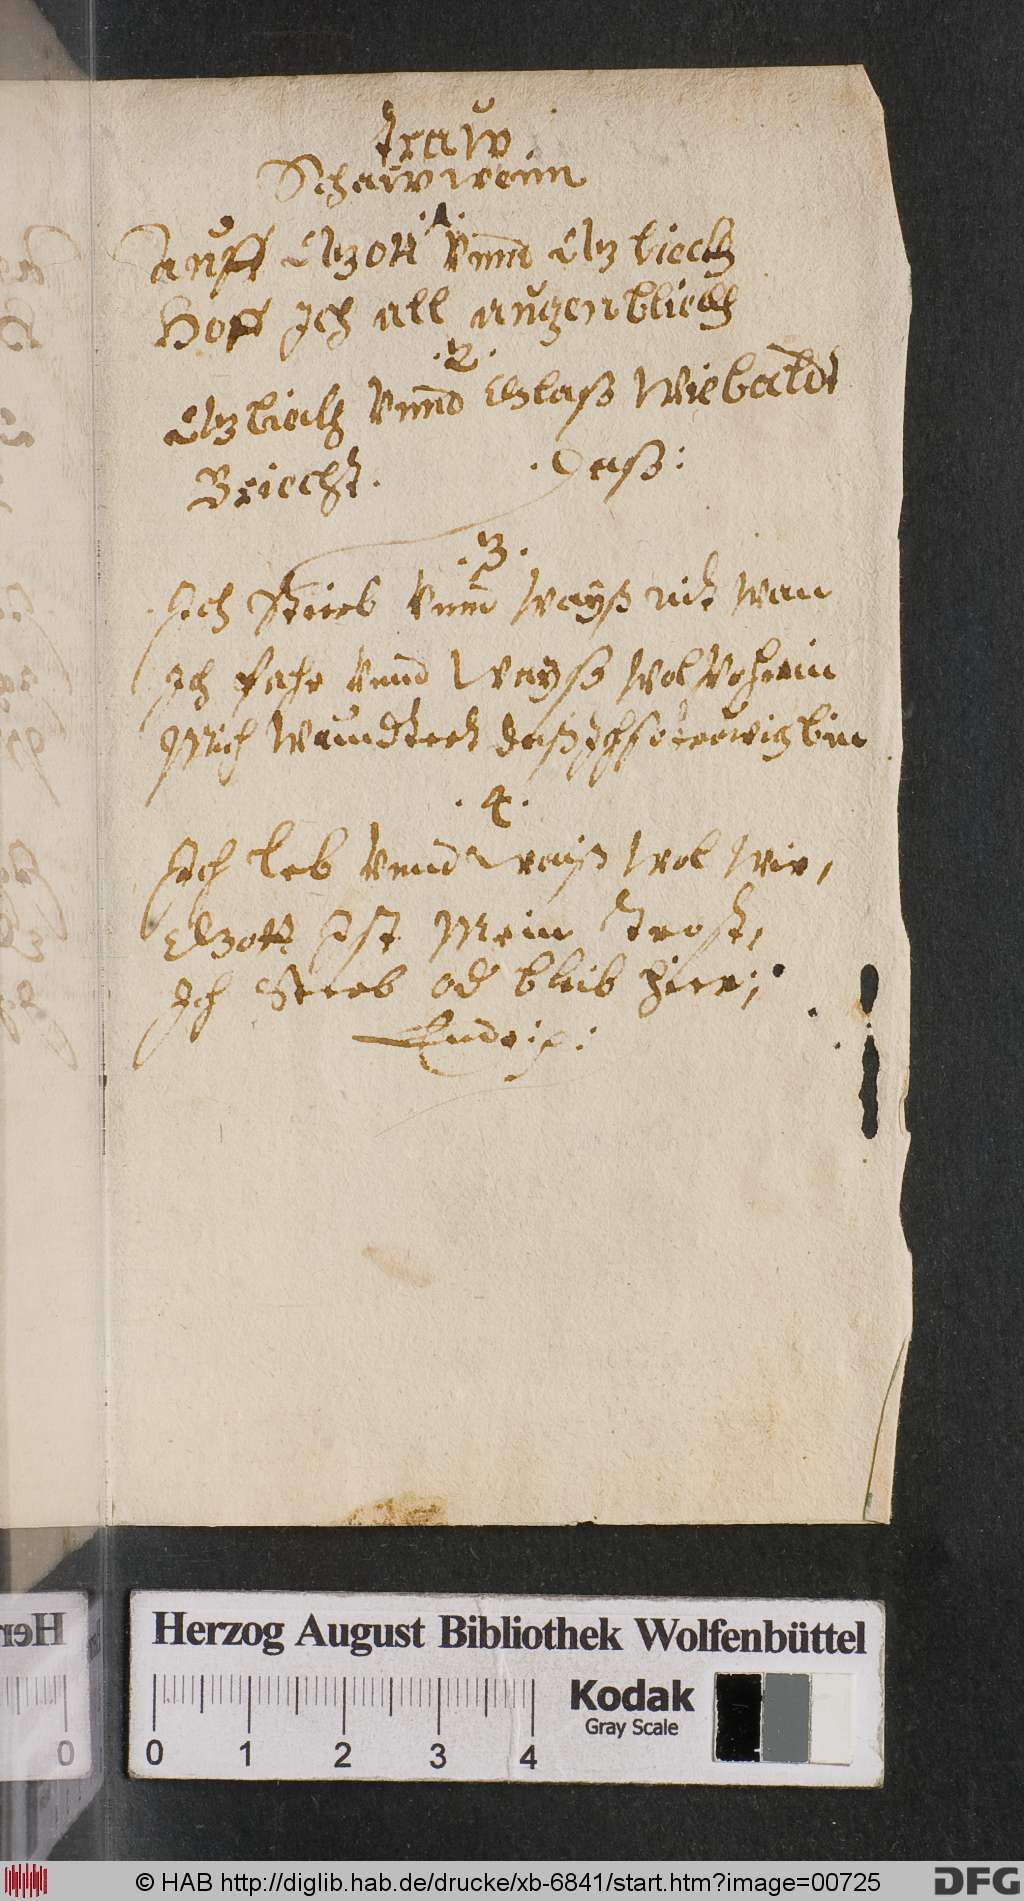 traw
Schaw wem
.1.
Auff Gott Vnnd Glieckh
Hoff Ich all augenblieckh
.2.
Glieckh Vnnd Glaß Wiebaldt
Briecht. .Daß:
.3.
Ich stierb Vnnd Wayß nit Wan
Ich fahr Vnnd Wayß Wol Wohein
Mich Wundtert daß Ich so trawig bin
.4.
Ich leb Vnnd Waiß Wol Wie,
Gott Ist Mein Trost,
Ich Sterb od bleib hier;
Ende
Her
0
Herzog August Bibliothek Wolfenbüttel
Kodak
Gray Scale
0 1 2 3 4
© HAB http://diglib.hab.de/drucke/xb-6841/start.htm?image=00725
DFG